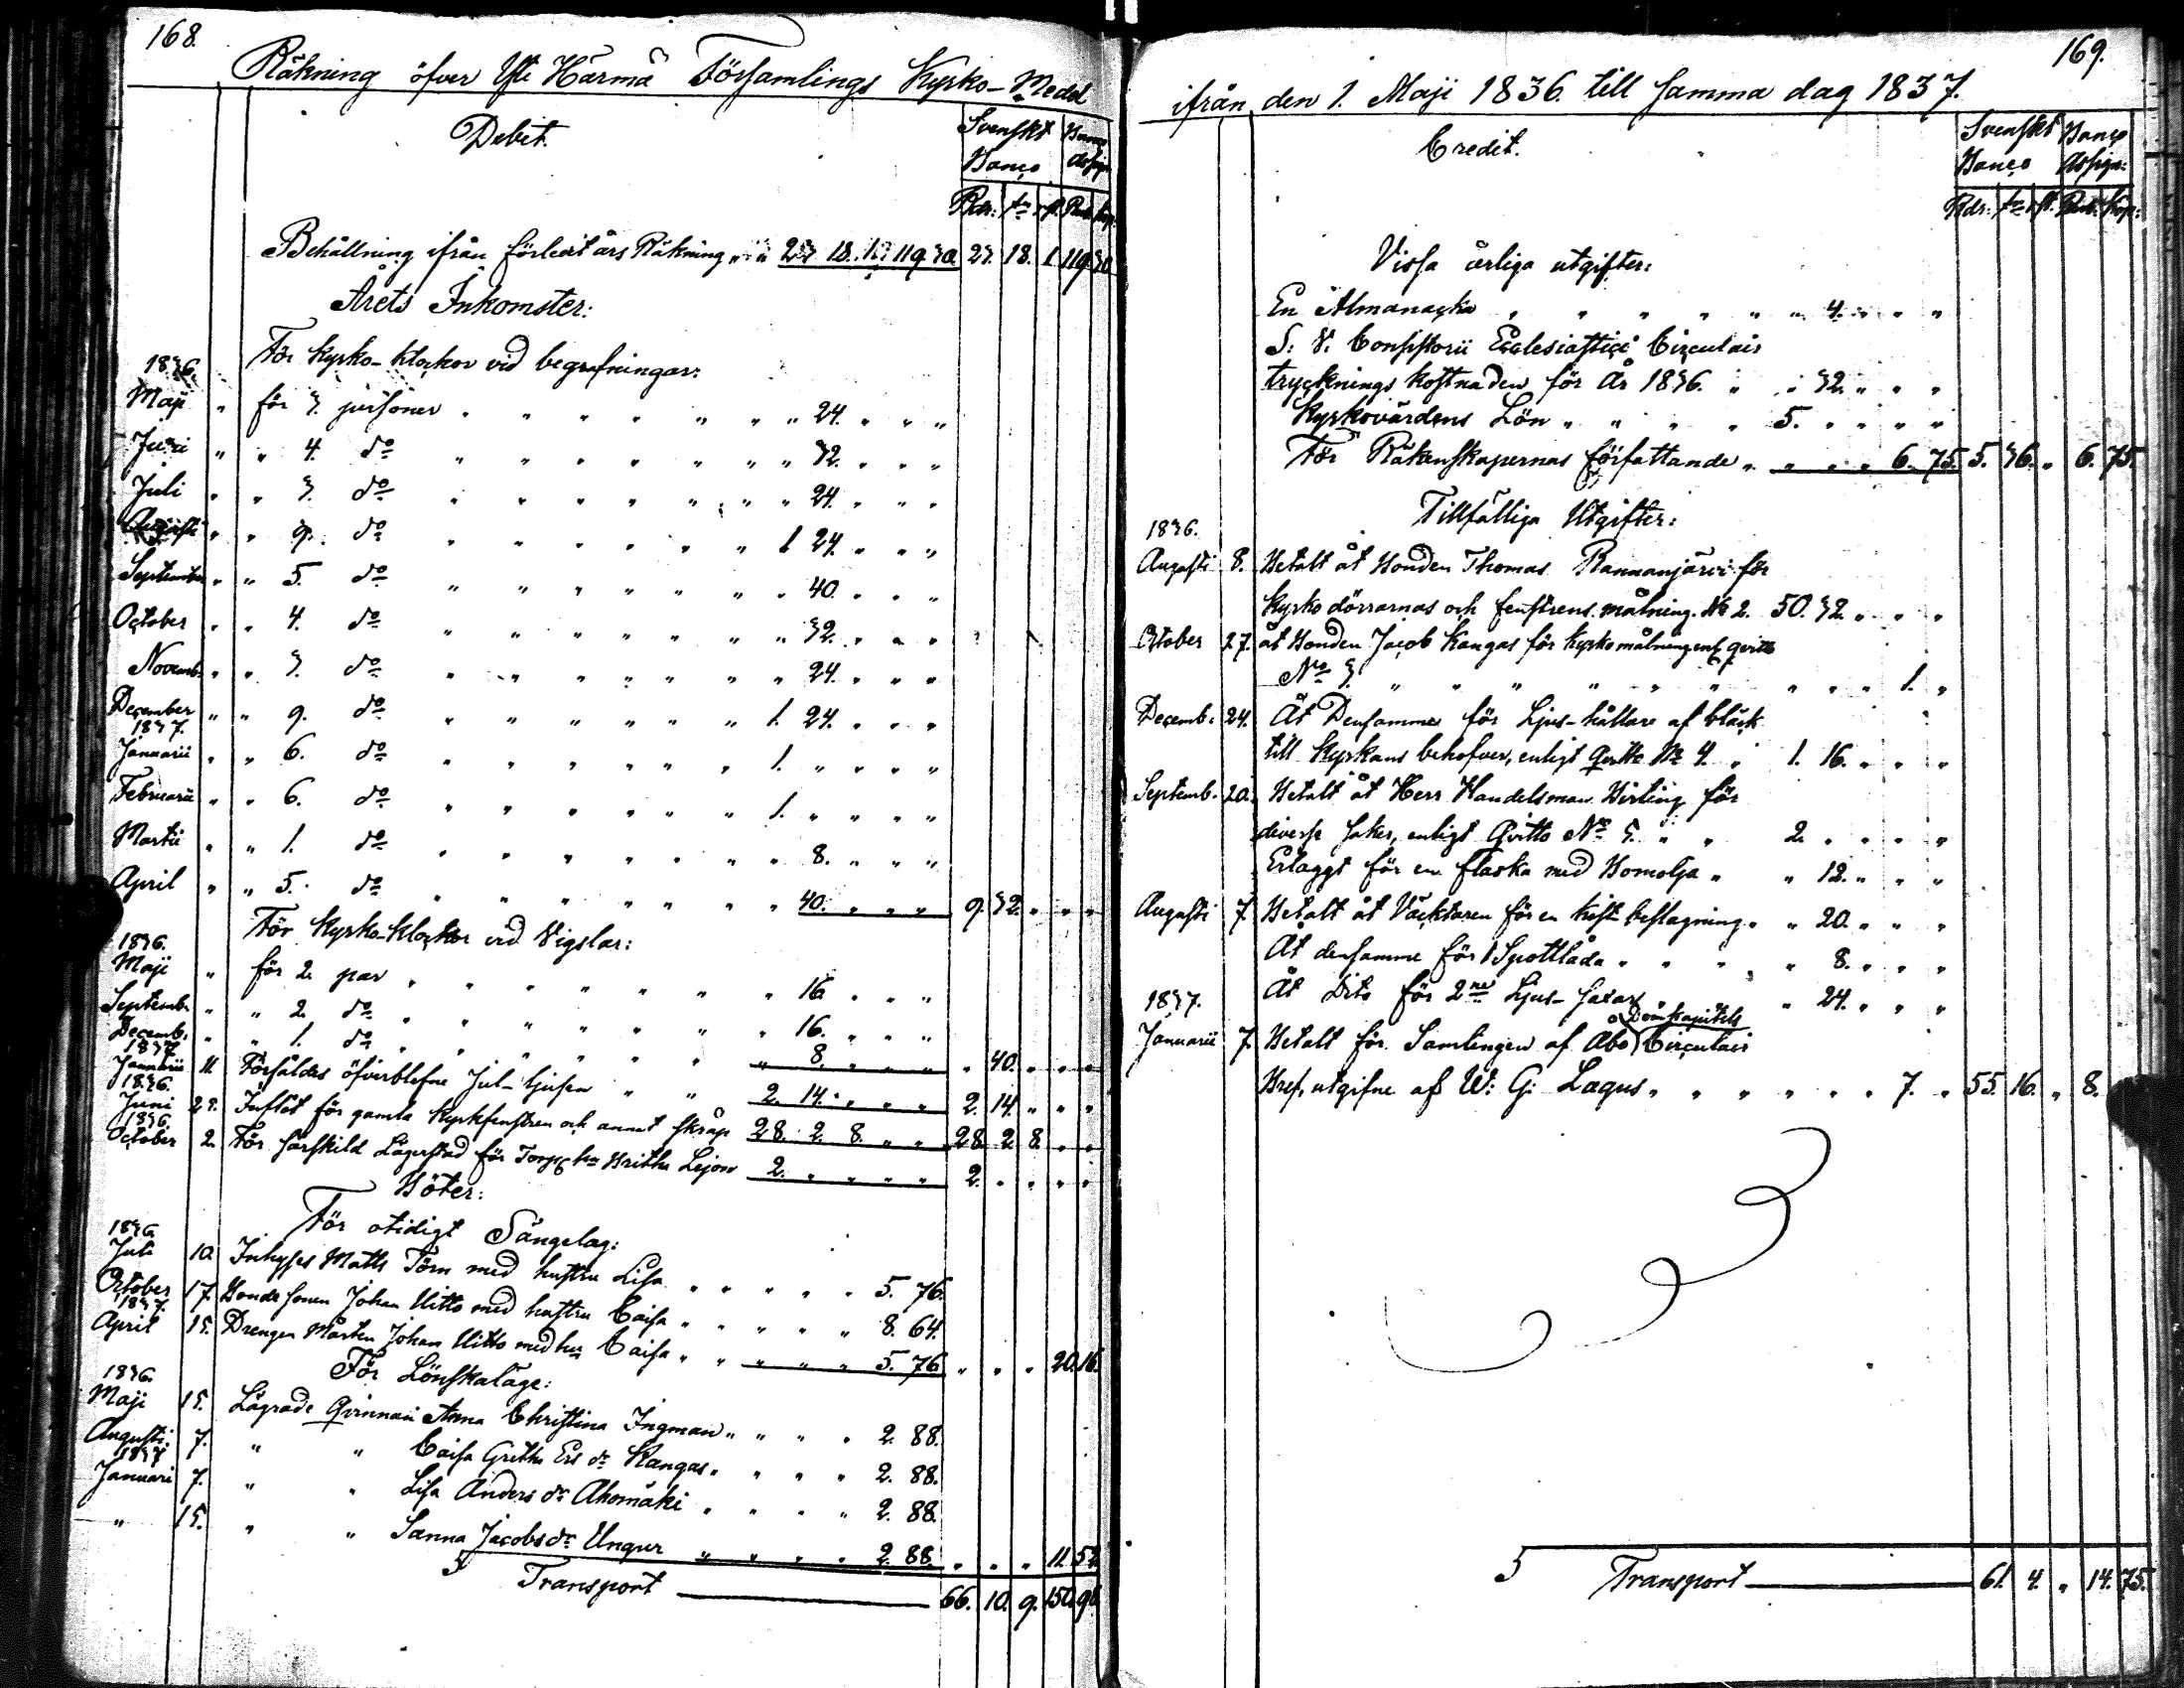 168.
Räkning öfver Yli Härmä Församlings Kyrko-Medel
Debit.
Svenskt Banco
Banco Assign.
Rdr: sk. rst. Rub. Kop:
Behållning ifrån förledit års Räkning " " 23 18. 1. 119 30. 23. 18. 1. 119. 30
Årets Inkomster:
För Kyrko-Klockor vid begrafningar:
1836.
Maji " för 3. personer " " " " " " " 24. " " "
Juni " " 4. do " " " " " " " 32. " " "
Juli " " 3. do " " " " " " " 24. " " "
Augusti " " 9. do " " " " " " 1. 24. " " "
September " " 5. do " " " " " " " 40. " " "
October " " 4. do " " " " " " " 32. " " "
Novemb. " " 3. do " " " " " " " 24. " " "
December " " 9. do " " " " " " 1. 24. " " "
1837.
Januarii " " 6. do " " " " " " 1. " " " "
Februarii " " 6. do " " " " " " 1. " " " "
Martii " " 1. do " " " " " " " 8. " " "
April " " 5. do " " " " " " " 40. " " " 9. 32. " " "
För Kyrko-Klockor vid Vigslar:
1836.
Maji " för 2. par " " " " " " " 16. " " "
Septemb. " " 2. do " " " " " " " 16. " " "
Decemb. " " 1. do " " " " " " " 8. " " " " 40. " " "
1837.
Januarii 11. Försåldes öfverblefne Jul-ljusen " " 2. 14. " " " 2. 14. " " "
1836.
Juni 29. Influt för gamla Kyrkfenstren och annat skräp 28. 2. 8. " " 28. 2. 8. " "
1836.
October 2. För särskild Lägerstad för hu Britha Lejon 2. " " " " 2. " " " "
Böter:
För otidigt Sängelag:
1836.
Juli 10. Inhyses Matts Törn med hustru Lisa " " " " " 5. 76.
October 17. Bonde sonen Johan Uitto med hustru Caisa " " " " " 8. 64.
1837.
April 15. Drengen Mårten Johan Uitto med hu Caisa " " " " " 5. 76. " " " 20. 16.
För Lönskaläge:
1836.
Maji 15. Lägrade Qvinnan Anna Christina Ingman " " " " 2. 88.
Augusti 7. " " Caisa Gretha Ers dr Kangas " " " " 2. 88.
1837.
Januari 7. " " Lisa Anders dr Ahomäki " " " " 2. 88.
" 15. " " Sanna Jacobs dr Ungur " " " " 2. 88. " " " 11. 52.
Transport 66. 10. 9. 150. 98.
169.
ifrån den 1. Maji 1836. till samma dag 1837.
Credit.
Svenskt Banco
Banco Assign:
Rdr: sk. rst. Rub. Kop:
Vissa årliga utgifter:
En Almanacka " " " " " " 4. " " "
S: V. Consistorii Ecclesiastici Circulair
trycknings kostnaden för År 1836. " " 32. " " "
Kyrkovärdens Lön " " " " 5. " " " "
För Räkenskapernas författande " " " " 6. 75. 5. 36. " 6. 75.
Tillfälliga Utgifter:
1836.
Augusti 8. Betalt åt Bonden Thomas Rannanjärvi för
Kyrko dörrarnas och fenstrens målning. No 2. 50. 32. " " "
October 27. åt Bonden Jacob Kangas för kyrko målning enl qvitto
No 3. " " " " " " " " 1. "
Decemb. 24. Åt Densamme för Ljus-hållare af bläck
till Kyrkans behofver, enligt Qvitto No 4. " 1. 16. " " "
Septemb. 20. Betalt åt Herr Handelsman Birling för
diverse saker, enligt Qvitto No 5. " " 2. " " " "
Erlaggt för en flaska med Bomolja " " 12. " " "
Augusti 7. Betalt åt Väcktaren för en kist beslagning " " 20. " " "
Åt densamme för 1 Spottlåda " " " " 8. " " "
Åt Dito för 2ne Ljus-saxar " 24. " " "
1837.
Januarii 7. Betalt för Samlingen af Åbo Domkapitels Circulair
Bref, utgifne af W: G: Lagus " " " " " " 7. " 55. 16. " 8.
Transport 61. 4. " 14. 75.